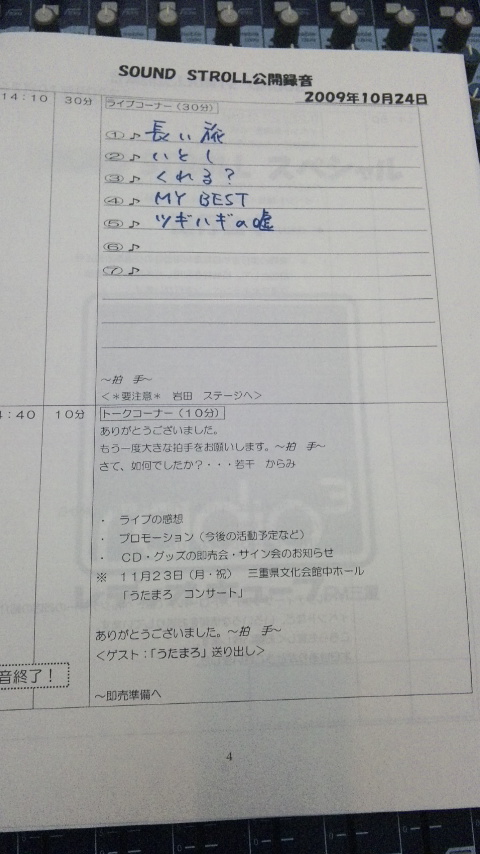 SOUND STROLL公開録音
2009年10月24日
14:10 30分 ライブコーナー(30分)
① ♪ 長い旅
② ♪ いとし
③ ♪ くれる?
④ ♪ MY BEST
⑤ ♪ ツギハギの嘘
⑥ ♪
⑦ ♪
~拍 手~
<*要注意* 岩田 ステージへ>
4:40 10分 トークコーナー(10分)
ありがとうございました。
もう一度大きな拍手をお願いします。~拍 手~
さて、如何でしたか?・・・若干 からみ
・ ライブの感想
・ プロモーション(今後の活動予定など)
・ CD・グッズの即売会・サイン会のお知らせ
※ 11月23日(月・祝) 三重県文化会館中ホール
「うたまろ コンサート」
ありがとうございました。~拍 手~
<ゲスト:「うたまろ」送り出し>
音終了!
~即売準備へ
4